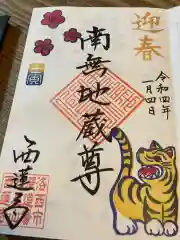 迎春
令和四年
一月四日
南無地蔵尊
西蓮寺